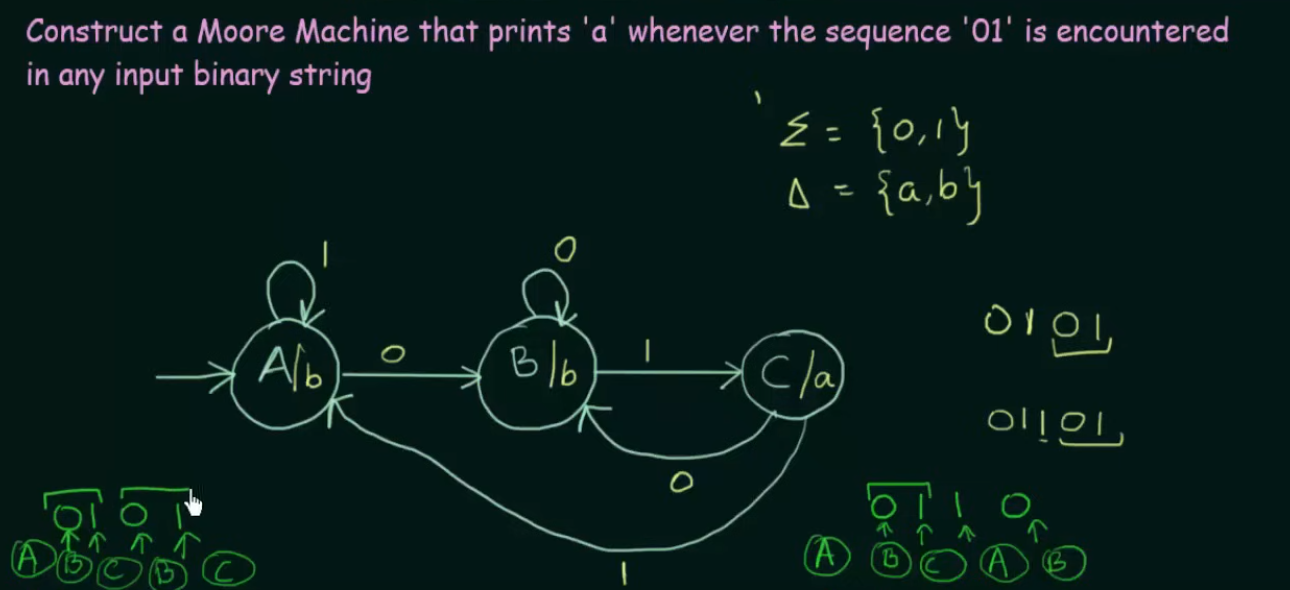 Construct a Moore Machine that prints 'a' whenever the sequence '01' is encountered
in any input binary string
Σ = {0,1}
Δ = {a,b}
1
0
A/b
0
B/b
1
C/a
0101
01101
0
1
0101
A B C B C
0110
A B C A B